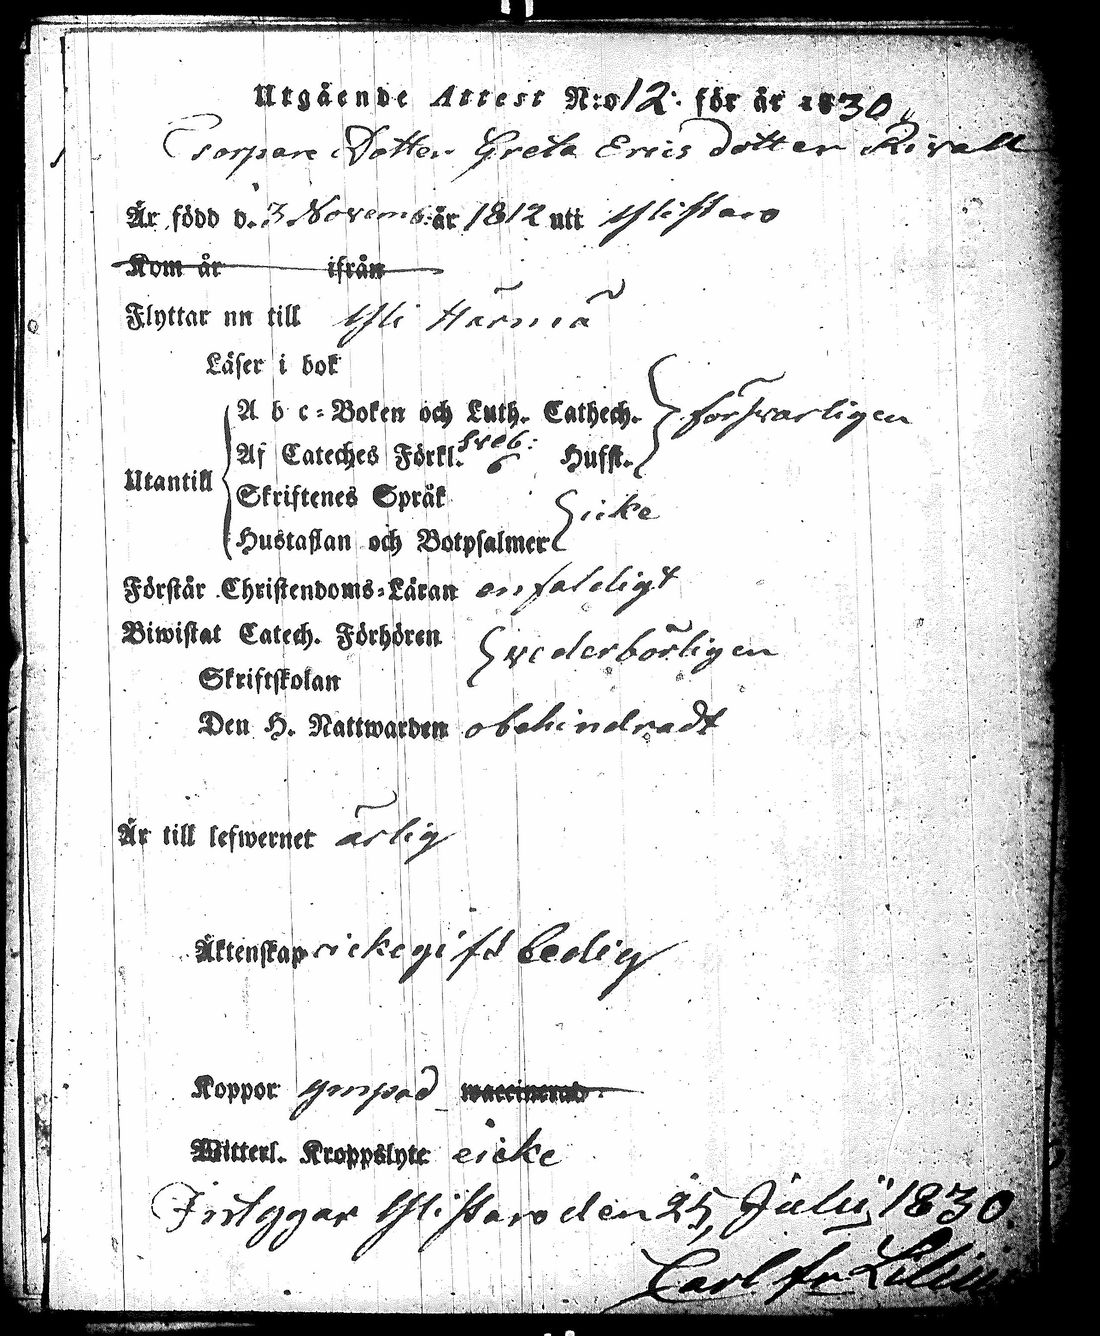 Utgående Attest N:o 12. för år 1830
Torpare Dotter Greta Erics dotter Rivall
Är född d. 3 Novemb: år 1812 uti Ylistaro
Kom år ifrån
Flyttar nu till Yli Härmä
Läser i bok
A b c-Boken och Luth. Cathech. försvarligen
Af Cateches Förkl. Sveb: 6 Husst.
Utantill
Skriftenes Språk icke
Hustaflan och Botpsalmer
Förstår Christendoms-Läran enfaldigt
Biwistat Catech. Förhören vederbörligen
Skriftskolan
Den H. Nattwarden obehindradt
Är till lefwernet ärlig
Äktenskap ickegift ledig
Koppor ympad waccinerad
Witterl. Kroppslyte eicke
Intygar Ylistaro den 25 Julii 1830.
Carl Fr